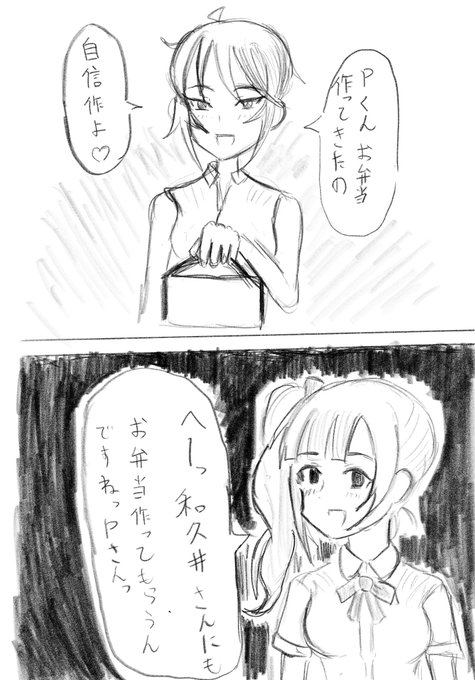 Pくんお弁当
作ってきたの
自信作よ♡
へーっ和久井さんにも
お弁当作ってもらうん
ですねっPさんっ